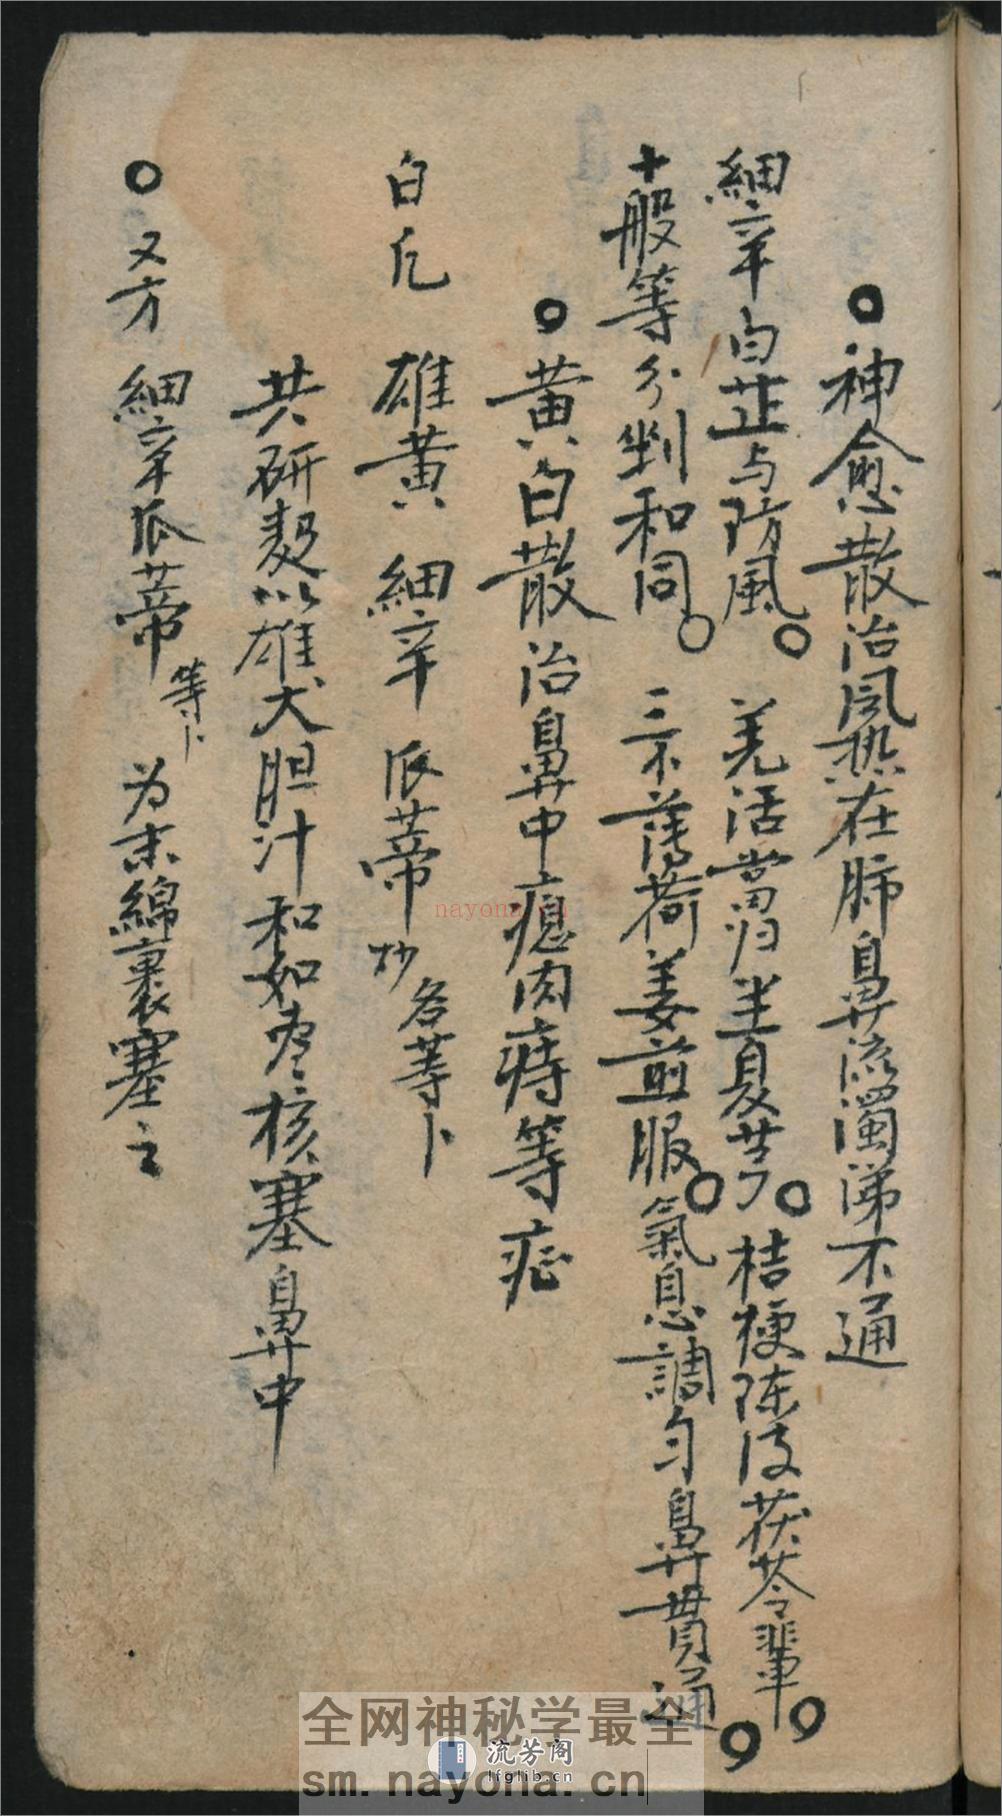 ○神愈散治风热在肺鼻流濁涕不通
細辛白芷与防風○羌活當归半夏芎○桔梗陈皮茯苓輩○
十般等分剉和同○三不薄荷姜煎服○氣息調匀鼻貫通○
○黄白散治鼻中瘜肉痔等症
白凡 雄黄 細辛 瓜蒂炒各等卜
共研 以雄犬胆汁和如枣核塞鼻中
○又方 細辛瓜蒂等卜 为末綿裹塞之
nayona.cn
全网神秘学最全
流芳阁
lfglib.cn
sm.nayona.cn